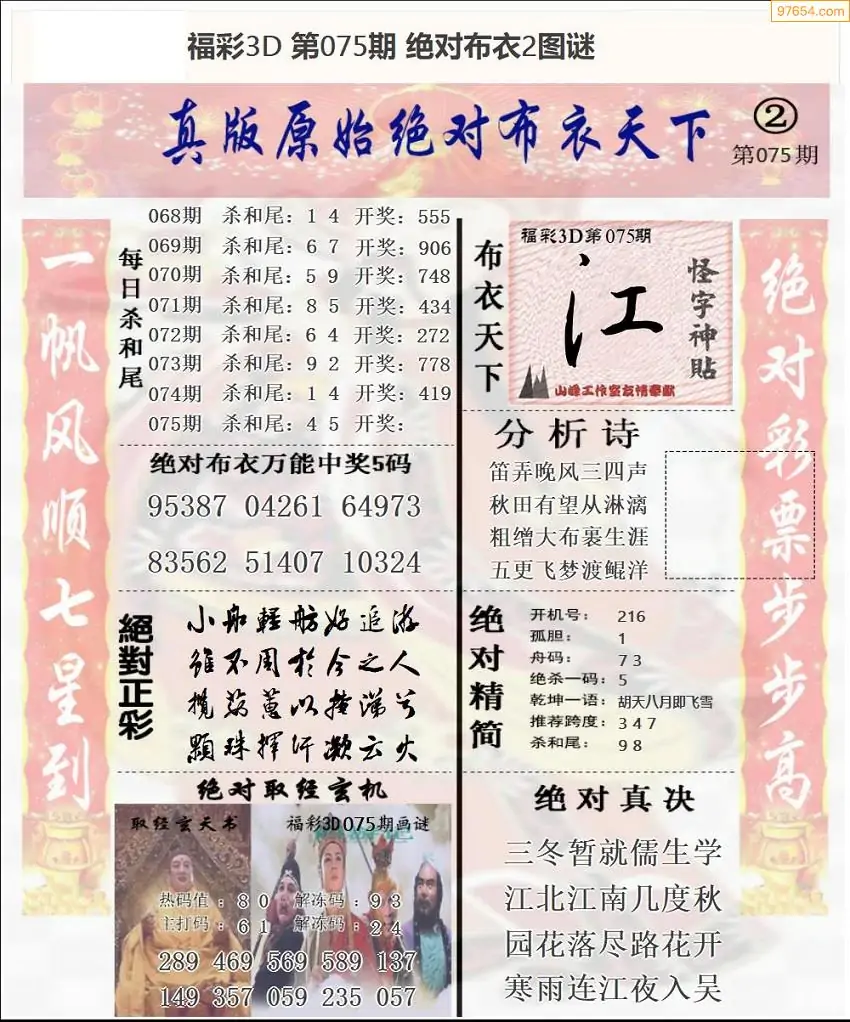 97654.com
福彩3D 第075期 绝对布衣2图谜
真版原始绝对布衣天下
②
第075期
一帆风顺七星到
每日杀和尾
068期 杀和尾：1 4 开奖：555
069期 杀和尾：6 7 开奖：906
070期 杀和尾：5 9 开奖：748
071期 杀和尾：8 5 开奖：434
072期 杀和尾：6 4 开奖：272
073期 杀和尾：9 2 开奖：778
074期 杀和尾：1 4 开奖：419
075期 杀和尾：4 5 开奖：
绝对布衣万能中奖5码
95387 04261 64973
83562 51407 10324
絕對正彩
小舟輕舫好追游
虽不周於今之人
揽茹蕙以掩涕兮
顆珠挥汗漱云火
绝对取经玄机
取经玄天书
福彩3D075期画谜
热码值：8 0 解冻码：9 3
主打码：6 1 解冻码：2 4
289 469 569 589 137
149 357 059 235 057
布衣天下
福彩3D第075期
江
怪字神贴
山峰工作室友情奉献
分析诗
笛弄晚风三四声
秋田有望从淋漓
粗缯大布裹生涯
五更飞梦渡鲲洋
绝对精简
开机号： 216
孤胆： 1
舟码： 7 3
绝杀一码：5
乾坤一语：胡天八月即飞雪
推荐跨度：3 4 7
杀和尾： 9 8
绝对真决
三冬暂就儒生学
江北江南几度秋
园花落尽路花开
寒雨连江夜入吴
绝对彩票步步高